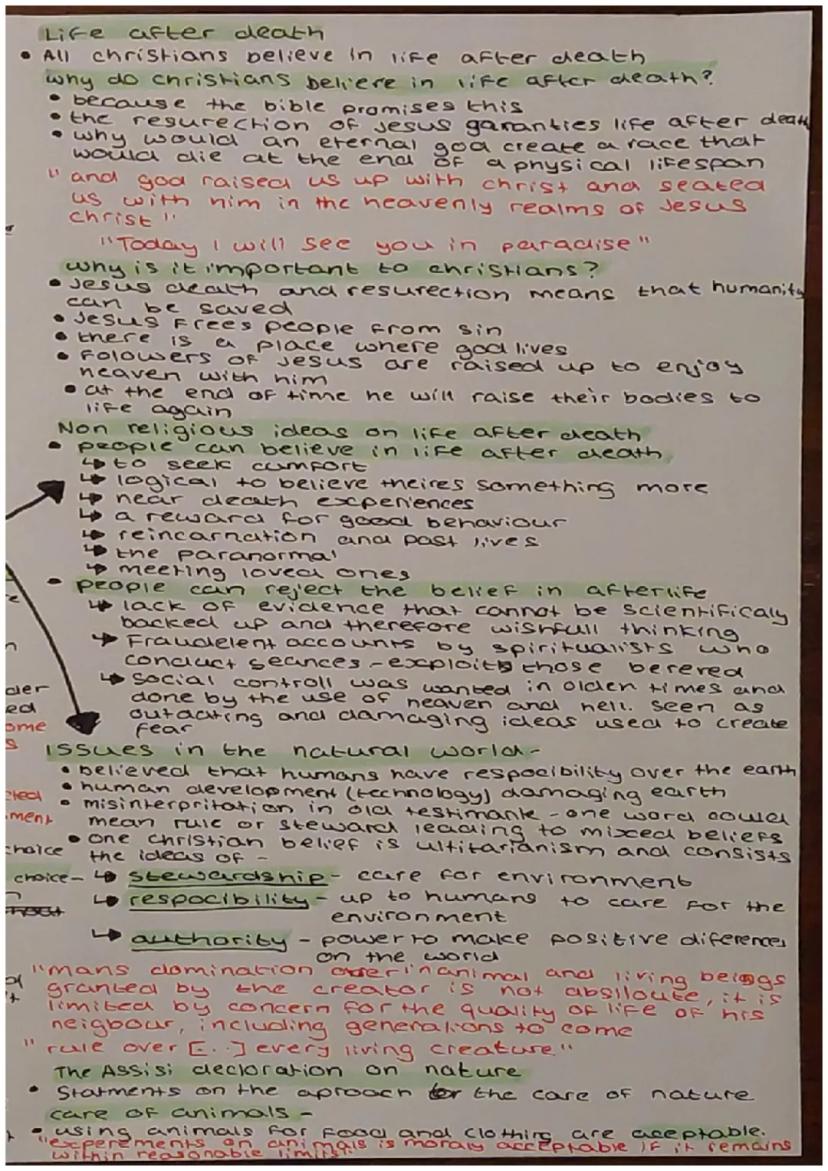 Life after death
• All christians believe in life after death
why do christians believe in life after death?
• because the bible promises this
• the resurection of Jesus garanties life after death
• why would an eternal god create a race that
would die at the end of a physical lifespan
"and god raised us up with christ and seated
us with him in the heavenly realms of Jesus
christ"
"Today I will see you in paradise"
why is it important to christians?
• Jesus death and resurection means that humanity
can be saved
• Jesus frees people from sin
• there is a place where god lives
• Folowers of Jesus are raised up to enjoy
heaven with him
• at the end of time he will raise their bodies to
life again
Non religious ideas on life after death
• people can believe in life after death
↳ to seek comfort
↳ logical to believe theires something more
↳ near death experiences
↳ a reward for good behaviour
↳ reincarnation and past lives
↳ the paranormal
↳ meeting loved ones
• people can reject the belief in afterlife
↳ lack of evidence that cannot be scientificaly
backed up and therefore wishfull thinking
↳ Fraudelent accounts by spiritualists who
conduct seances - exploits those berered
↳ social controll was wanted in olden times and
done by the use of heaven and hell. seen as
outdating and damaging ideas used to create
fear
issues in the natural world -
• believed that humans have respocibility over the earth
• human development (technology) damaging earth
• misinterpritation in old testimante - one word could
mean rule or steward leading to mixed beliefs
• one christian belief is ultitarianism and consists
the ideas of -
choice
choice - ↳ stewardship - care for environment
↳ respocibility - up to humans to care for the
environment
↳ authority - power to make positive diferences
on the world
"mans domination over inanimal and living beings
granted by the creator is not absiloute, it is
limited by concern for the quality of life of his
neigbour, including generations to come
"rule over [...] every living creature"
The Assisi decloration on nature
• Statments on the aproach for the care of nature
care of animals -
• using animals for food and clothing are aceptable.
"experements on animals is moraly acceptable if it remains
within reasonable limits"